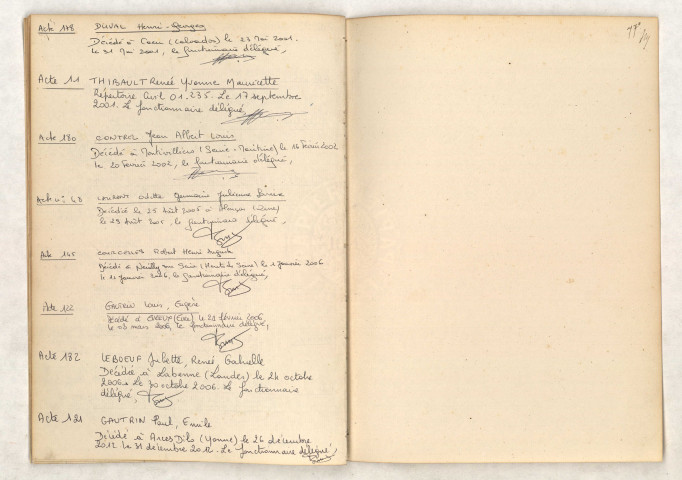 Acte 178 DUVAL Henri-Georges
Décédé à Caen (Calvados) le 23 Mai 2001.
le 31 Mai 2001, le fonctionnaire délégué,
Acte 11 THIBAULT Renée Yvonne Mauricette
Répertoire Civil 01.235. Le 17 septembre
2001. Le fonctionnaire délégué,
Acte 180 CONTROL Jean Albert Louis
Décédé à Montivilliers (Seine-Maritime) le 16 Février 2002
le 20 Février 2002, le fonctionnaire délégué,
Acte n° 68 Odette Germaine Julienne
Décédée le 25 Août 2005 à Alençon (Orne)
le 29 Août 2005, le fonctionnaire délégué,
Acte 145 Robert Henri Auguste
Décédé à Neuilly sur Seine (Hauts de Seine) le Janvier 2006
le Janvier 2006, le fonctionnaire délégué,
Acte 122 GAUTRIN Louis, Eugène
Décédé à (Eure) le 28 février 2006,
le 03 mars 2006, le fonctionnaire délégué,
Acte 182 LEBOEUF Juliette, Renée, Gabrielle
Décédée à Labenne (Landes) le 24 octobre
2006. Le 30 octobre 2006. Le fonctionnaire
délégué,
Acte 121 GAUTRIN Paul, Emile
Décédé à Arces Dilo (Yonne) le 26 décembre
2012 le 31 décembre 2012. Le fonctionnaire délégué,